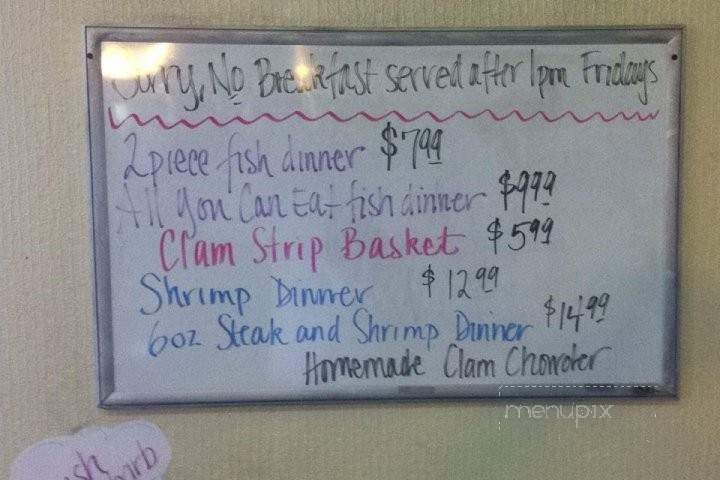 Sorry, No Breakfast served after 1pm Fridays
2 piece fish dinner $7.99
All You Can Eat fish dinner $9.99
Clam Strip Basket $5.99
Shrimp Dinner $12.99
6oz Steak and Shrimp Dinner $14.99
Homemade Clam Chowder
menupix